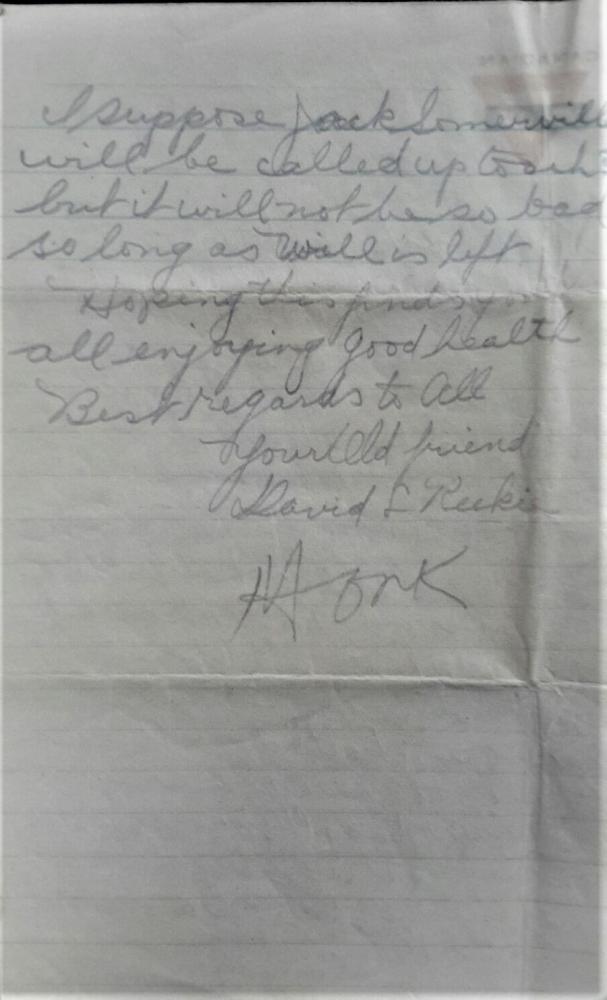 I suppose Jack Somervill
will be called up too
but it will not be so bad
so long as Will is left
Hoping this finds you
all enjoying good health
Best regards to All
Your Old friend
David L Reekie